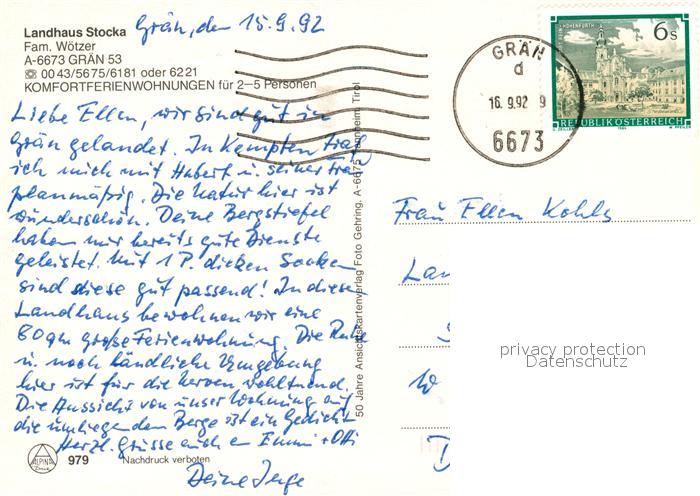 Grän, den 15.9.92
Landhaus Stocka
Fam. Wötzer
A-6673 GRÄN 53
0043/5675/6181 oder 6221
KOMFORTFERIENWOHNUNGEN für 2–5 Personen
Liebe Ellen, wir sind gut in
Grän gelandet. In Kempten traf
ich mich mit Hubert u. seiner Frau
planmäßig. Die Natur hier ist
wunderschön. Deine Bergstiefel
haben mir bereits gute Dienste
geleistet. Mit 1 P. dicken Socken
sind diese gut passend! In diesem
Landhaus bewohnen wir eine
80qm große Ferienwohnung. Die Ruhe
u. noch ländliche Umgebung
hier ist für die Nerven wohltuend.
Die Aussicht von unser Wohnung auf
die umliegenden Berge ist ein Gedicht
Herzl. Grüsse auch an Emmi + Otti
Deine Inge
ALPINA
Druck
979 Nachdruck verboten
50 Jahre Ansichtskartenverlag Foto Gehring, A-6675 Tannheim Tirol
GRÄN
d
16. 9.92 9
6673
6 s
HOHENFURTH
REPUBLIK ÖSTERREICH
1984
Frau Ellen
Lan
W
D
privacy protection
Datenschutz